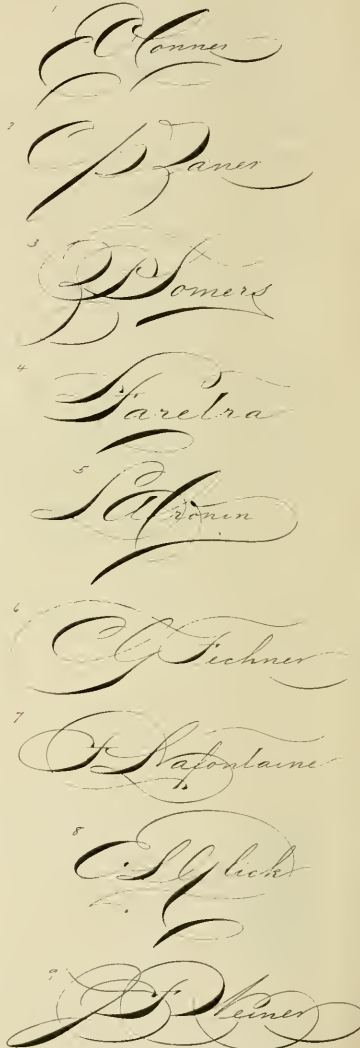 1
E A Conner
2
C P Zaner
3
Somers
4
Faretra
5
Cronin
6
C G Fechner
7
F Lafontaine
8
C. L. Glick
9
Weiner